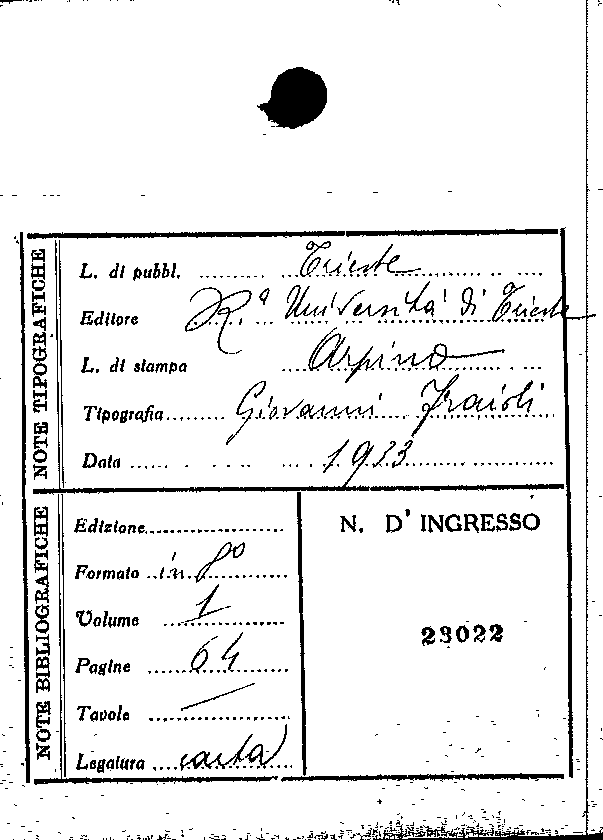 NOTE TIPOGRAFICHE
L. di pubbl. Trieste
Editore R.ª Università di Trieste
L. di stampa Arpino
Tipografia Giovanni Fraioli
Data 1933
NOTE BIBLIOGRAFICHE
Edizione
Formato in 8º
Volume 1
Pagine 64
Tavole /
Legatura carta
N. D' INGRESSO
23022